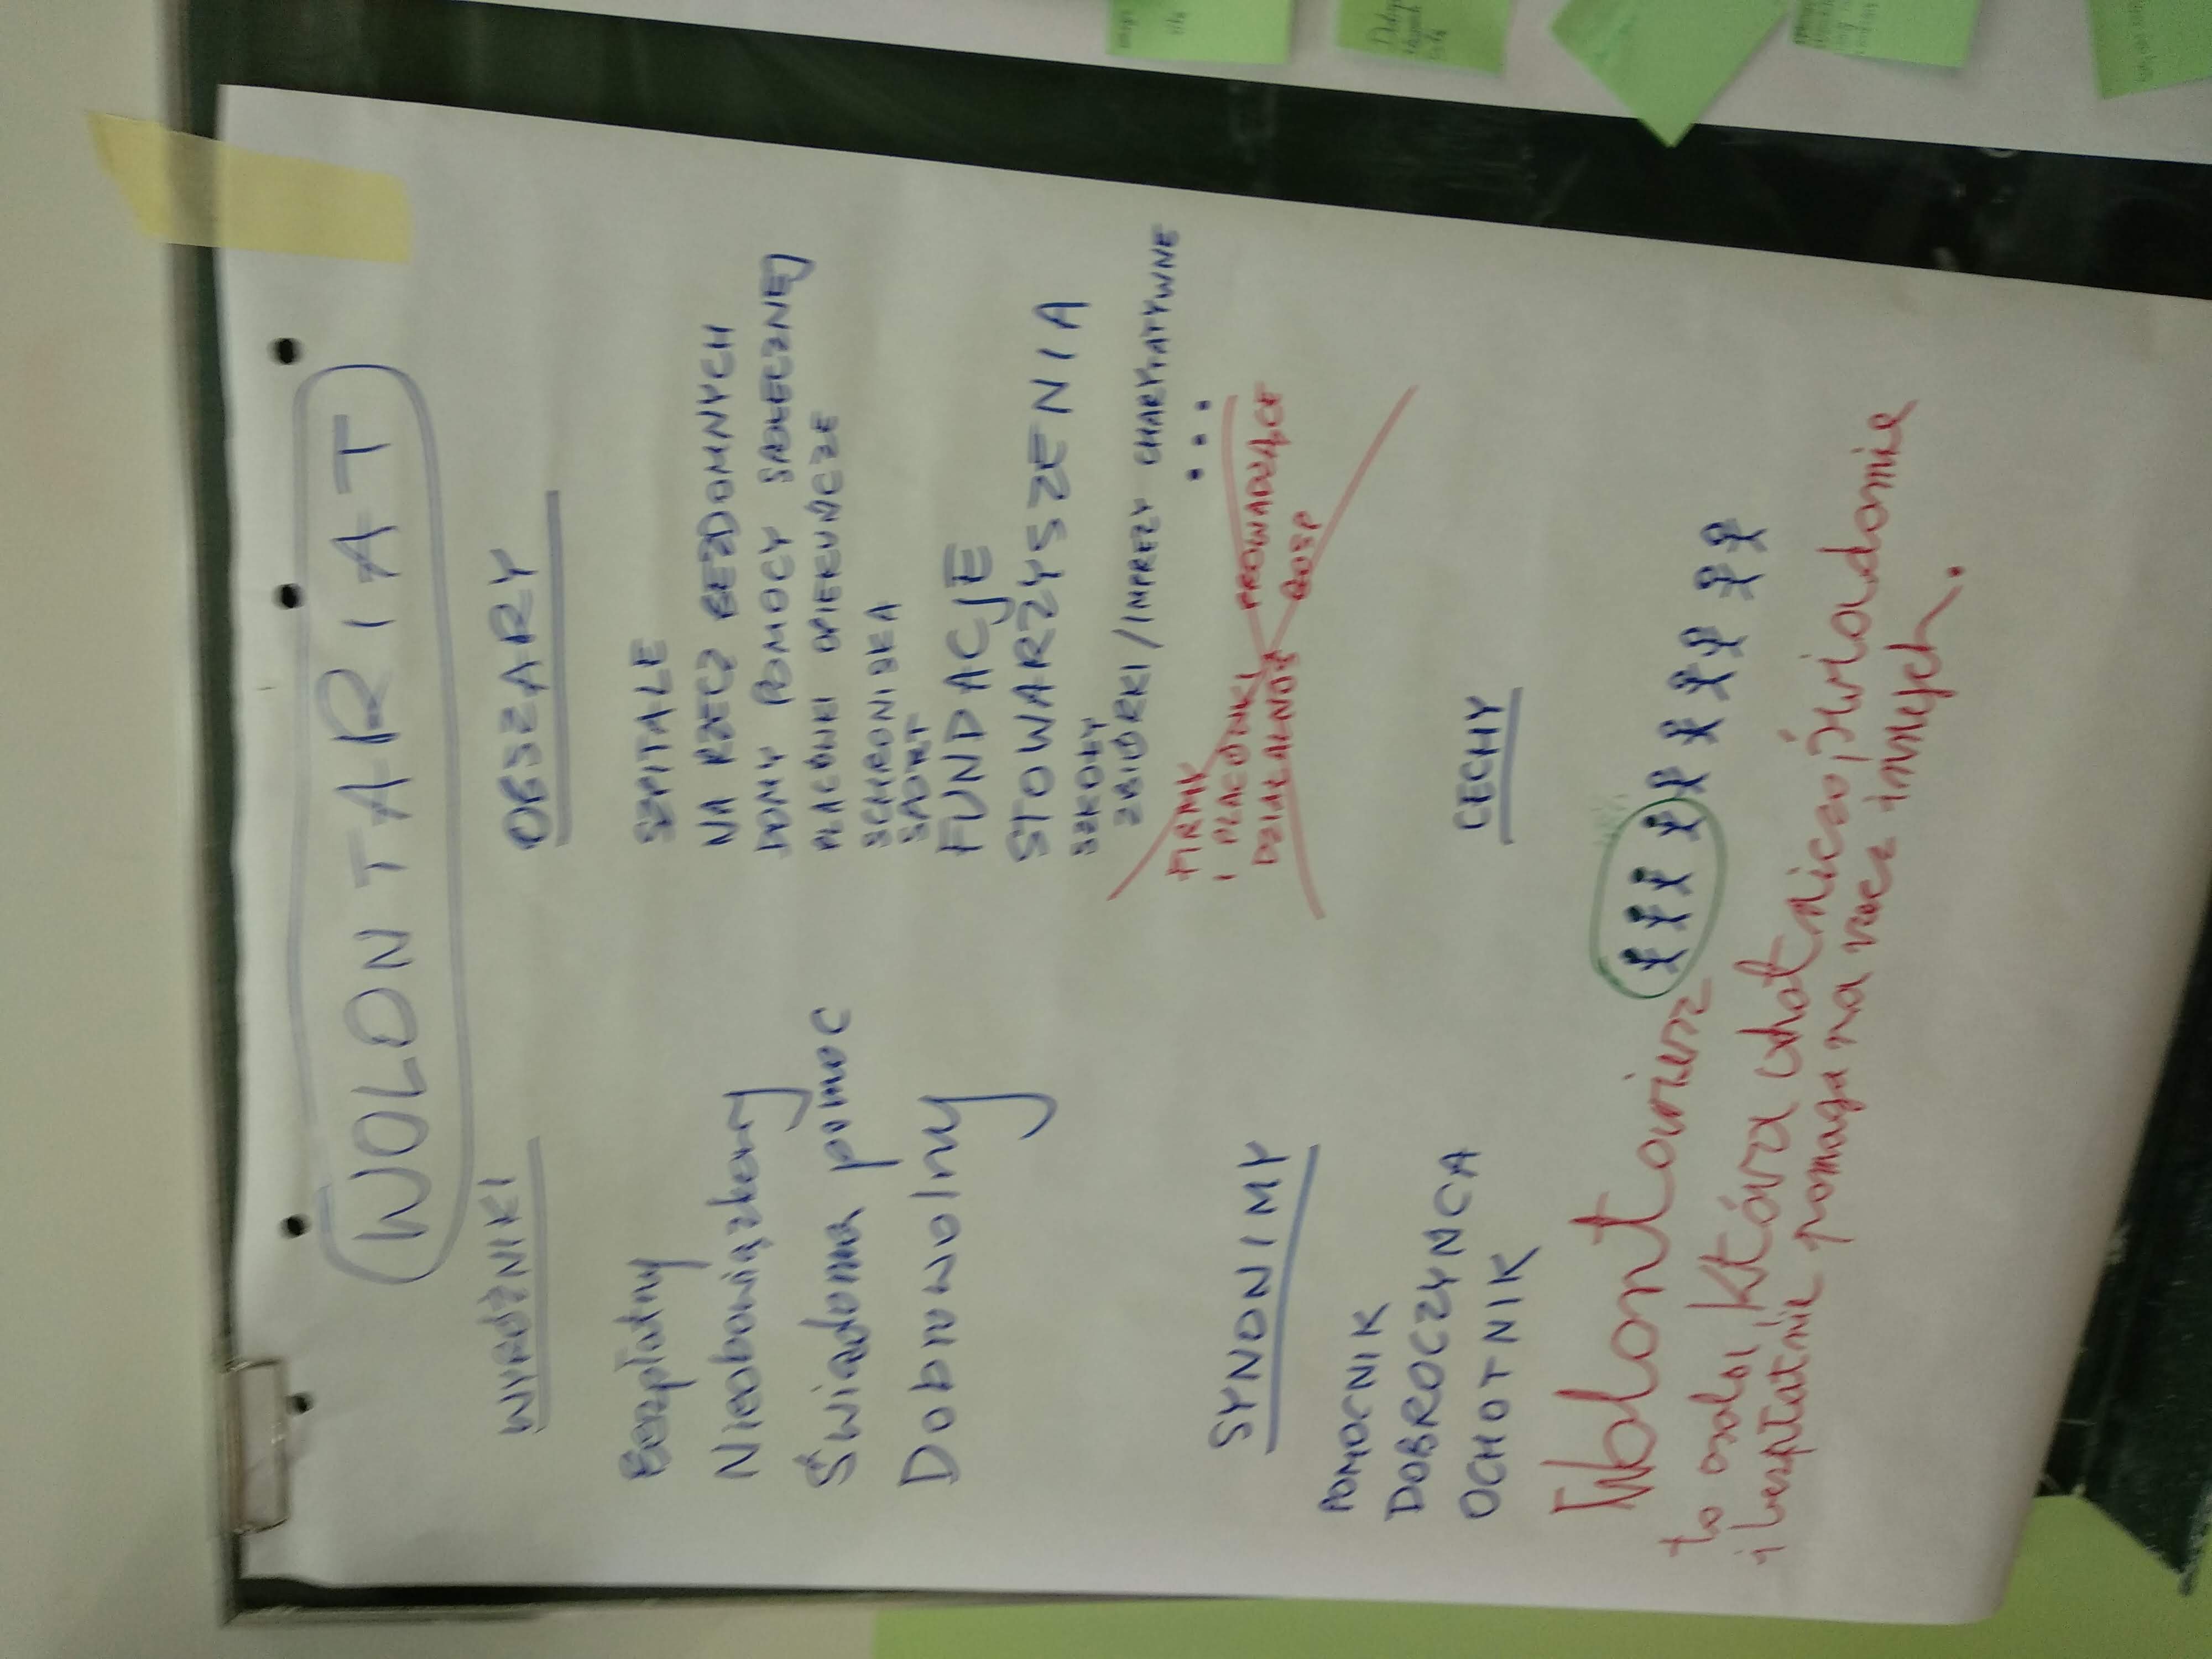 WOLONTARIAT
WYRÓŻNIKI
Bezpłatny
Nieobowiązkowy
Świadoma pomoc
Dobrowolny
OBSZARY
SZPITALE
NA RZECZ BEZDOMNYCH
DOMY POMOCY SPOŁECZNEJ
PLACÓWKI OPIEKUŃCZE
SCHRONISKA
SPORT
FUNDACJE
STOWARZYSZENIA
SZKOŁY
ZBIÓRKI/IMPREZY CHARYTATYWNE
...
FIRMY
I PLACÓWKI PROWADZĄCE
DZIAŁALNOŚ GOSP
SYNONIMY
POMOCNIK
DOBROCZYŃCA
OCHOTNIK
CECHY
Wolontariusz
to osoba, która ochotniczo, świadomie
i bezpłatnie pomaga na rzecz innych.